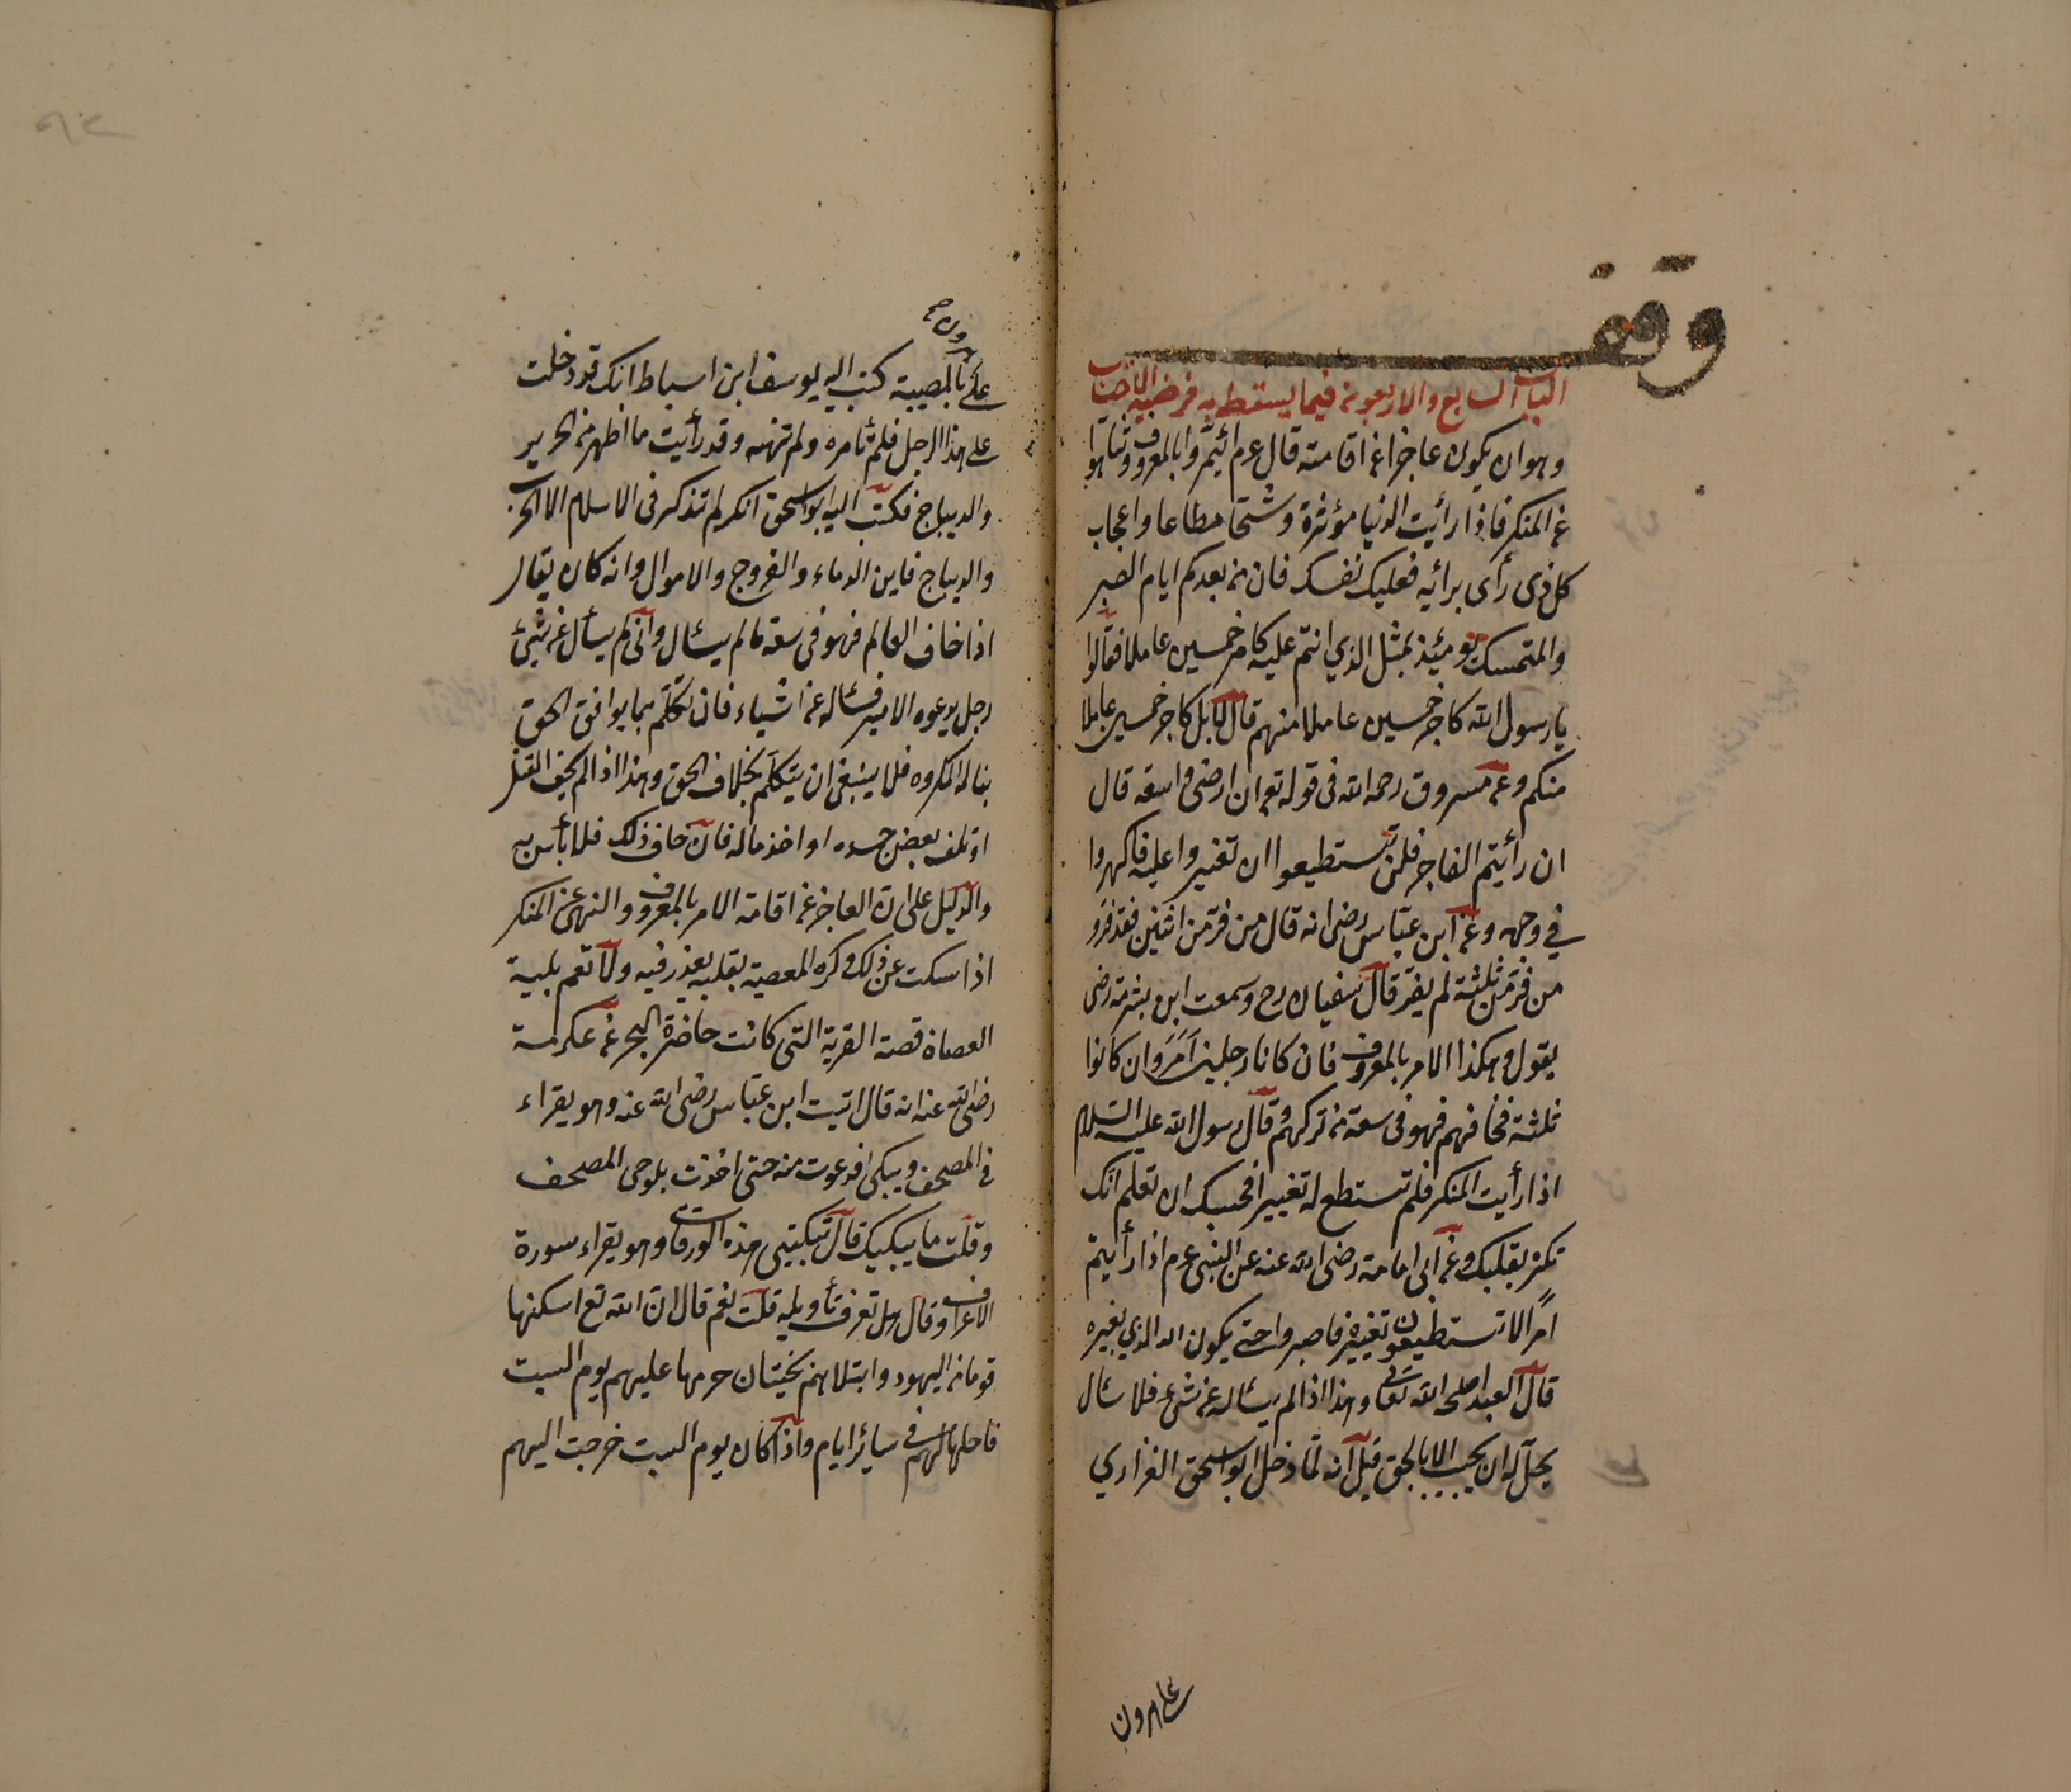 وقف
الباب السابع والاربعون فيما يسقط به فرضية الاحتساب
وهو ان يكون عاجزا عن اقامته قال عم ائتمروا بالمعروف وتناهوا
عن المنكر فاذا رأيت الدنيا مؤثرة وشحا مطاعا واعجاب
كل ذى رأى برائه فعليك نفسك فان من بعدكم ايام الصبر
والمتمسك يومئذ بمثل الذي انتم عليه كاجر خمسين عاملا فقالوا
يا رسول الله كاجر خمسين عاملا منهم قال لا بل كاجر خمسين عاملا
منكم وعن مسروق رحمه الله فى قوله تع ان ارضى واسعة قال
ان رأيتم الفاجر فلن تستطيعوا ان تغيروا عليه فاكهروا
في وجهه وعن ابن عباس رضى انه قال من فر من اثنين فقد فر و
من فر من ثلثة لم يفر قال سفيان رح وسمعت ابن شبرمة رضى
يقول وهكذا الامر بالمعروف فان كانا رجلين امر وان كانوا
ثلثة فخافهم فهو فى سعة من تركهم وقال رسول الله عليه السلام
اذا رأيت المنكر فلم تستطع له تغييرا فحسبك ان تعلم انك
تنكر بقلبك وعن ابى امامة رضى الله عنه عن النبى عم اذا رأيتم
امرا لا تستطيعون تغييره فاصبروا حتى يكون الله الذي يغيره
قال العبد اصلحه الله تعالى وهذا اذا لم يسئاله عن شئ فلا سئال
يحل له ان يجيب الا بالحق قيل انه لما دخل ابو اسحق الفزاري
على هرون
على هرون بالمصيبة كتب اليه يوسف ابن اسباط انك قد دخلت
على هذا الرجل فلم تأمره ولم تنهه وقد رأيت ما اظهر من الحرير
والديباج فكتب اليه ابو اسحق انكم لم تذكر فى الاسلام الا الحرير
والديباج فاين الدماء والفروج والاموال وانه كان يقال
اذا خاف العالم فهو فى سعة ما لم يسئال وانى لم يسأل عن شئ
رجل يدعوه الامير فسئاله عن اشياء فان تكلم بما يوافق الحق
يناله المكروه فلا ينبغى ان يتكلم بخلاف الحق وهذا اذا لم يخف القتل
او تلف بعض جسده او اخذ ماله فان خاف ذلك فلا بأس به
والدليل على ان العاجز عن اقامة الامر بالمعروف والنهى عن المنكر
اذا سكت عن ذلك وكره المعصية بقلبه يعذر فيه ولا تعم بلية
العصاة قصة القرية التى كانت حاضرة البحر عن عكرمة
رضى الله عنه انه قال اتيت ابن عباس رضى الله عنه وهو يقراء
فى المصحف ويبكى فدعوت منه حتى اخذت بلوحى المصحف
وقلت ما يبكيك قال تبكينى هذه الورقات وهو يقراء سورة
الاعراف وقال هل تعرف تأويله قلت نعم قال ان الله تع اسكنها
قوما من اليهود وابتلاهم بحيتان حرمها عليهم يوم السبت
فاحلها لهم فى سائر ايام واذا كان يوم السبت خرجت اليهم